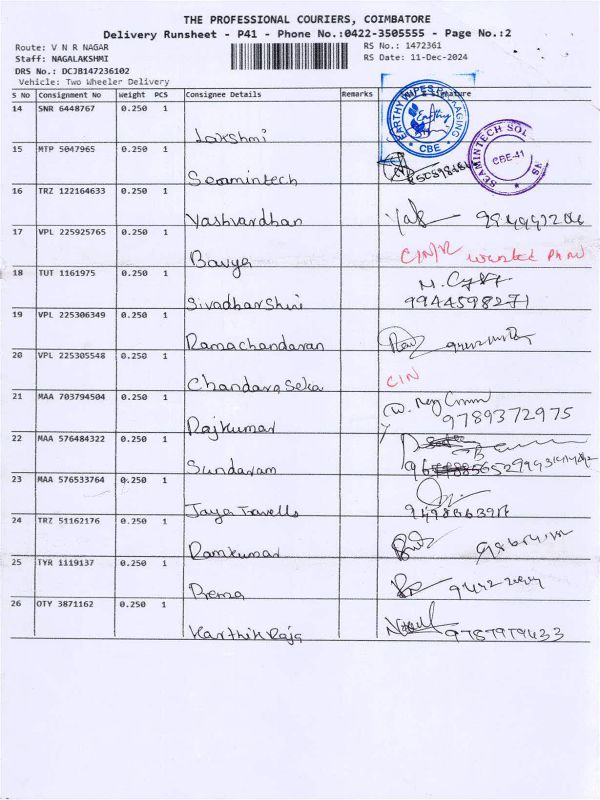 THE PROFESSIONAL COURIERS, COIMBATORE
Delivery Runsheet - P41 - Phone No.:0422-3505555 - Page No.:2
Route: V N R NAGAR RS No.: 1472361
Staff: NAGALAKSHMI RS Date: 11-Dec-2024
DRS No.: DCJB147236102
Vehicle: Two Wheeler Delivery
S No Consignment No Weight PCS Consignee Details Remarks Signature
14 SNR 6448767 0.250 1 Lakshmi
CBE
15 MTP 5047965 0.250 1 Seamintech
SEAMINTECH SOL
CBE-41
16 TRZ 122164633 0.250 1 Yashvardhan
17 VPL 225925765 0.250 1 Bavya
18 TUT 1161975 0.250 1 Sivadharshini
9944598271
19 VPL 225306349 0.250 1 Ramachandaran
20 VPL 225305548 0.250 1 Chandaraseka CIN
21 MAA 703794504 0.250 1 Rajkumar
9789372975
22 MAA 576484322 0.250 1 Sundaram
23 MAA 576533764 0.250 1 Jaya Travells
24 TRZ 51162176 0.250 1 Ramkumar
25 TYR 1119137 0.250 1 Prema
26 OTY 3871162 0.250 1 Karthik Raja 9787979433